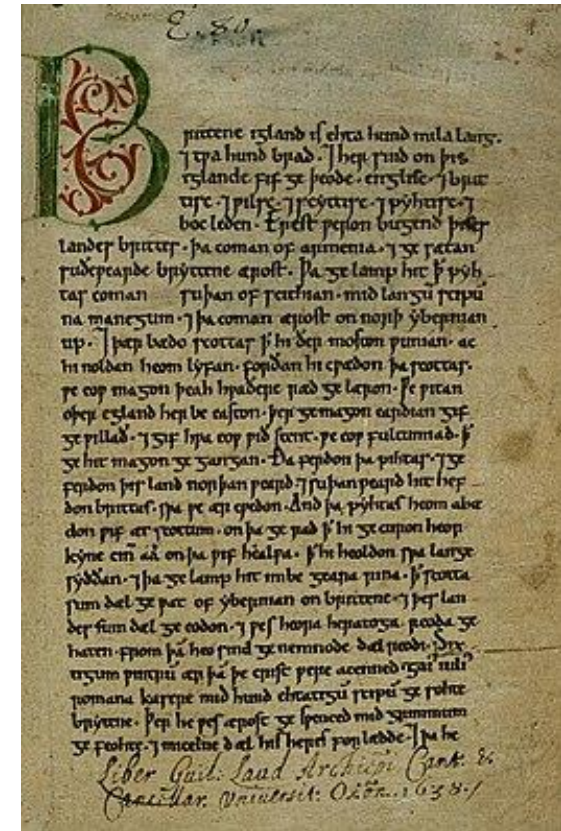 Brittene igland is ehta hund mila lang.
⁊ twa hund brad. ⁊ her sind on þis
iglande fif ge þeode. englisc. ⁊ brit
tisc. ⁊ wilsc. ⁊ scyttisc. ⁊ pyhtisc. ⁊
boc leden. Erest weron bugend þises
landes brittes. þa coman of armenia. ⁊ ge sætan
suðewearde bryttene ærost. Þa ge lamp hit þ̄ pyh
tas coman suþan of scithian. mid langū scipū
na manegum. ⁊ þa coman ærost on norþ ybernian
up. ⁊ þær bædo scottas þ̄ hi ðer moston wunian. ac
hi noldan heom lyfan. forðan hi cwædon þa scottas.
we eow magon þeah hwaðere ræd ge læron. We witan
oþer egland her be easton. þer ge magon eardian gif
ge willað. ⁊ gif hwa eow wið stent. we eow fultumiað. þ̄
ge hit magon ge gangan. Ða ferdon þa pihtas. ⁊ ge
ferdon þis land norþan weard. ⁊ suþan weard hit hef
don brittas. swa we ær cwedon. And þa pyhtas heom abæ
don wif æt scottum. on þa ge rad þ̄ hi ge curon heor
kyne cin̄ aa on þa wif healfa. þ̄ hi heoldon swa lange
syððan. ⁊ þa ge lamp hit imbe geara rina. þ̄ scotta
sum dæl ge wat of ybernian on brittene. ⁊ þes lan
des sum dæl ge eodon. ⁊ wes heora heratoga reoda ge
haten. from þā heo sind ge nemnode dæl reodi. Six
tigum wintrū ær þā þe crist were acenned gai' iuli'
romana kasere mid hund ehtatigū scipū ge sohte
brytene. Þer he wes ærost ge swenced mid grimmum
ge feohte. ⁊ micelne dæl his heres for lædde. ⁊ þa he
Liber Guil: Laud Archiepi Cant. &
Cancellar. Universit: Oxon. 1638.